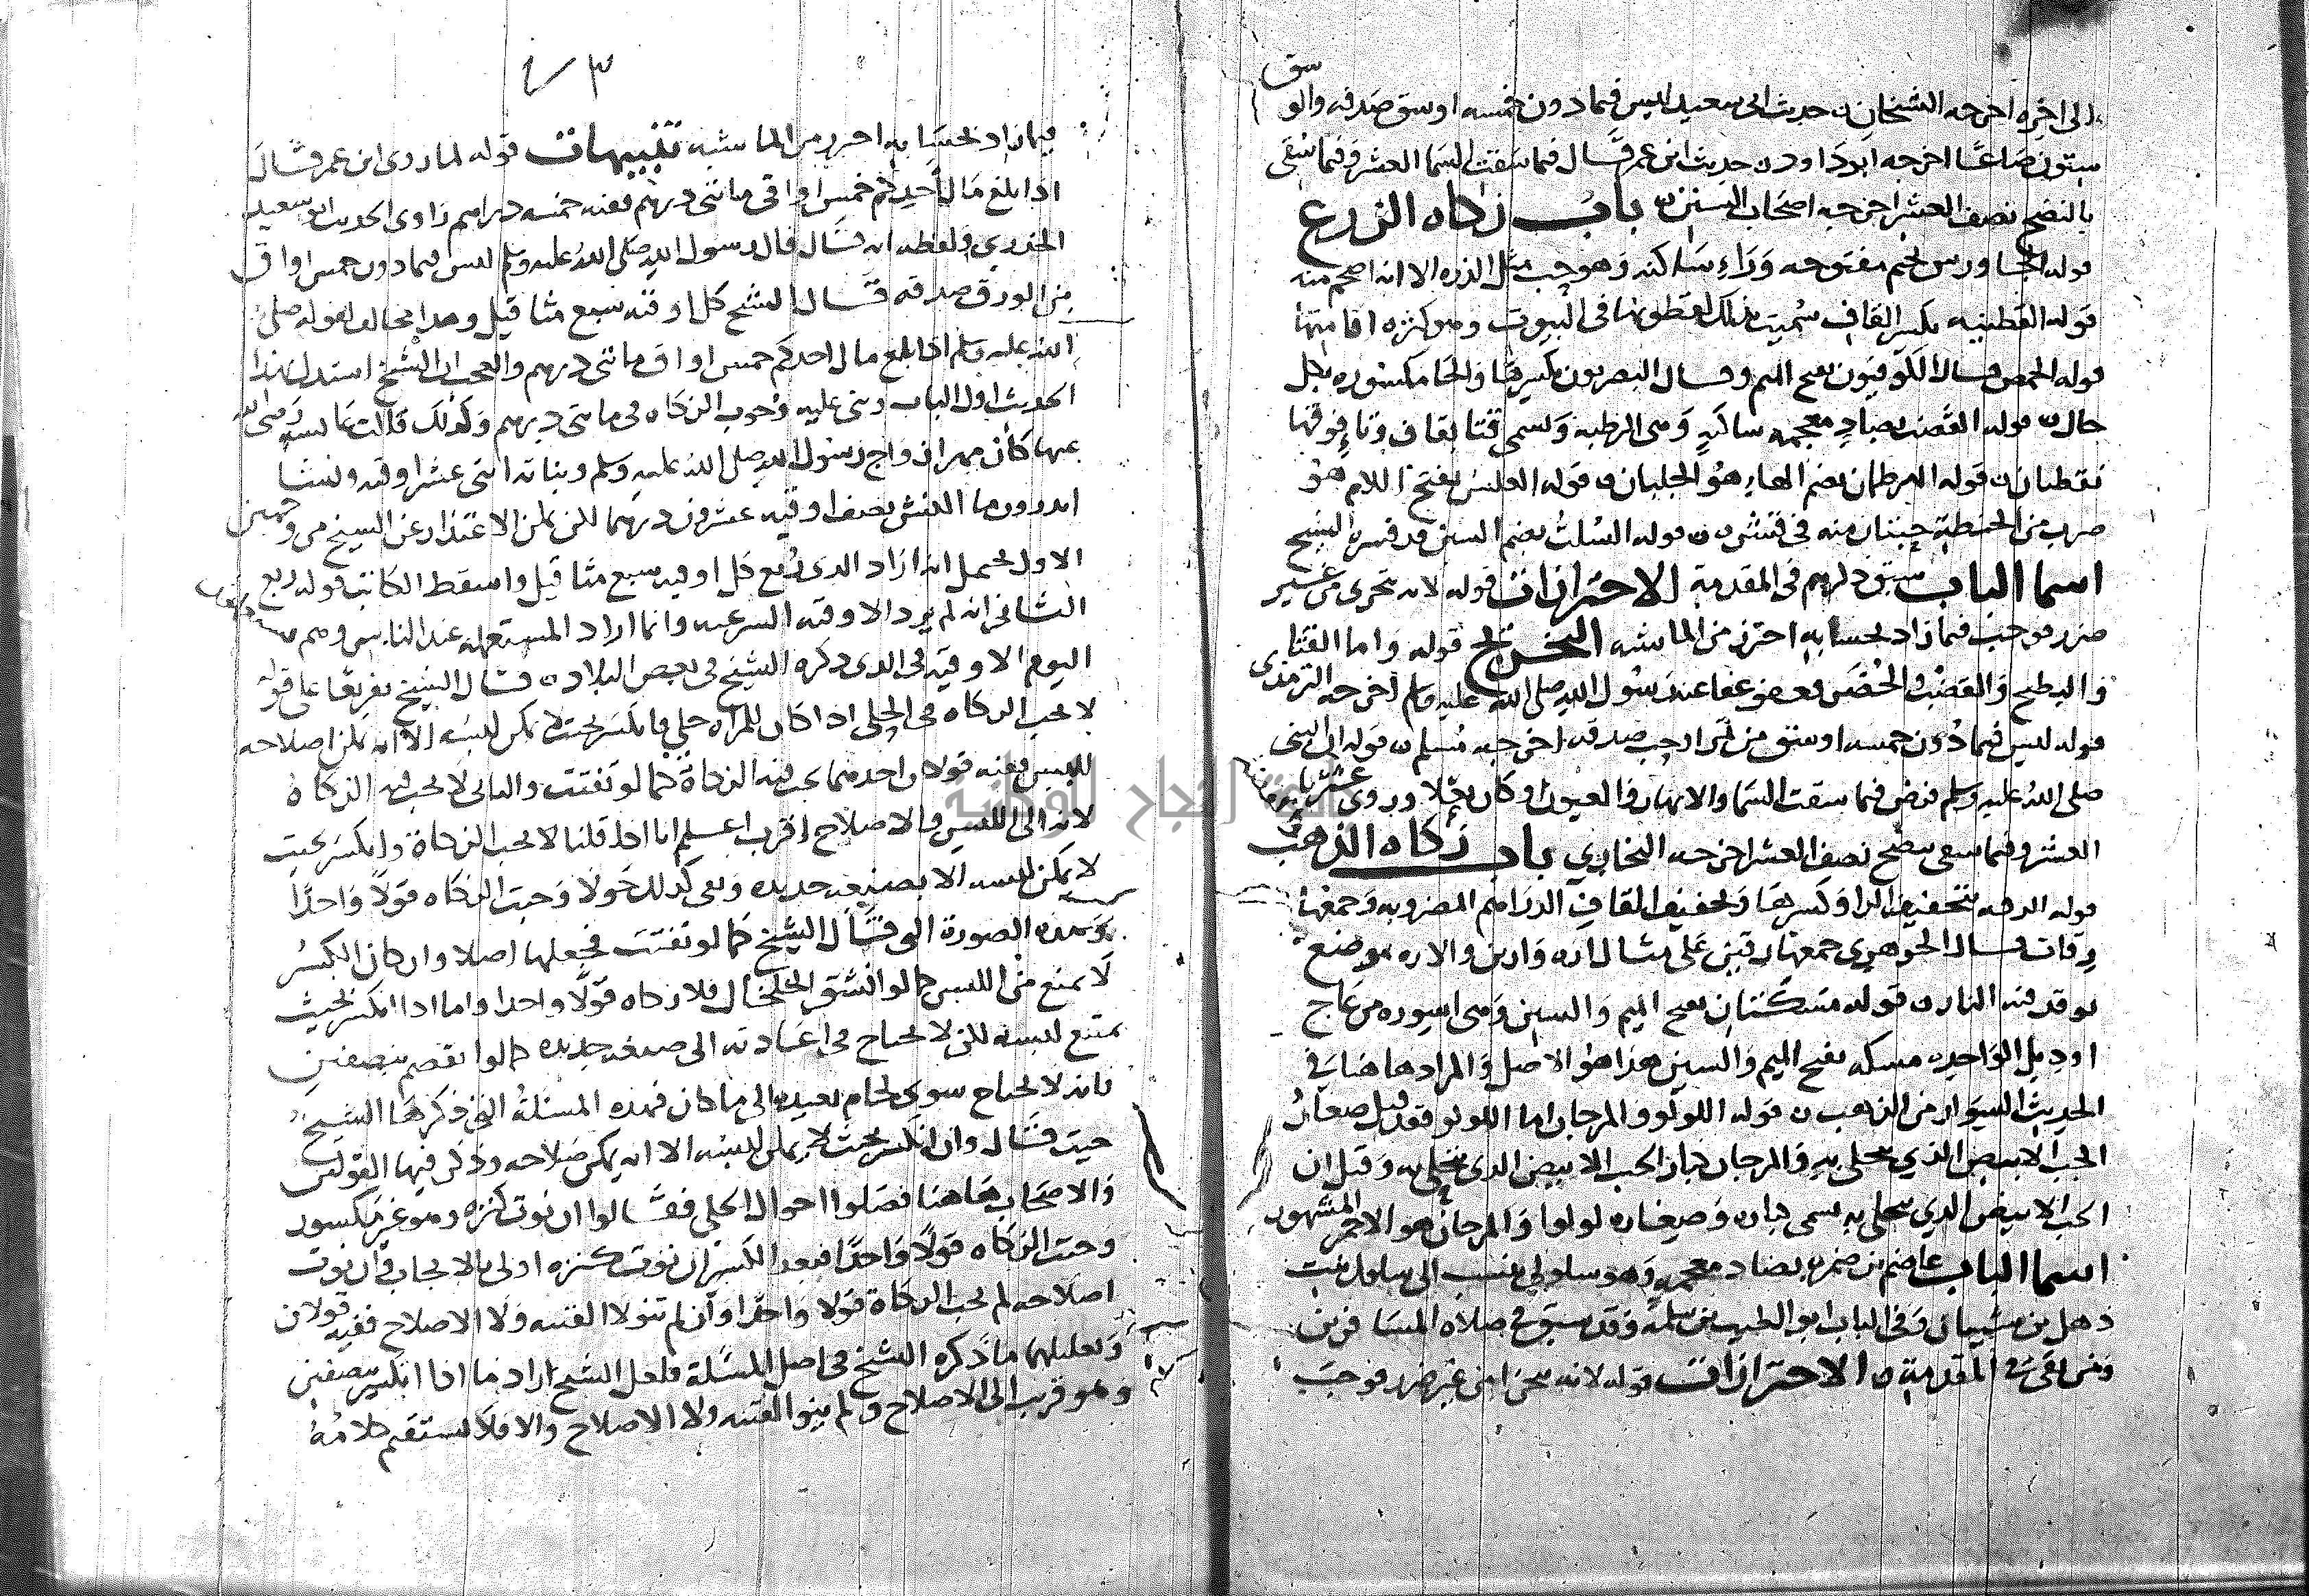 الى اخره اخرجه الشيخان ں حديث ابى سعيد ليس فيما دون خمسه اوسق صدقه والو
سق
ستون صاعًا اخرجه ابو داود ں حديث ابن عمر قال فيما سقت السما العشر وفيما سقى
بالنضح نصف العشر اخرجه اصحاب السنن ں باب زكاه الزرع
قوله الجاورس بجيم مفتوحه وراء ساكنه وهو حب مثل الذره الا انه اصحم منه
قوله القطنيه بكسر القاف سُميت بذلك لقطونها فى البيوت وهو كثره اقامتها
قوله الحمص قال الكوفيون بفتح الميم وقال البصريون بكسرها والحا مكسوره بكل
حال ں قوله القَضب بصادٍ معجمه ساكنهٍ وهى الرطبه وتسمى قتا بقاف وتاءٍ فوقها
نقطتان ں قوله الهرطمان بضم الهاء هُو الجلبان ں قوله العلس بفتح اللام هو
ضرب من الحنطة حبتان منه فى قشر ں قوله السُلتُ بضم السين قد فسره الشيخ
اسما الباب سبق ذكرهم فى المقدمة الاحترازات قوله لانه يتجزى من غير
ضرر فوجب فيما زاد بحسابهِ احترز من الماشيه التخريج قوله واما القثا
والبطيخ والقضب والخُضَر فعفو عفا عنه رسُول الله صلى الله عليه وسلم اخرجه الترمذى
قوله ليس فيما دُون خمسه اوسق من تمر او حب صدقه اخرجه مُسلم ں قوله ان النبى
صلى الله عليه وسلم فرض فيما سقت السما والانهار والعيون او كان بعلا وروى عثريا
العشر وفيما سقى بنضح نصف العشر اخرجه البخاري باب زكاه الذهب
قوله الرقه بتخفيف الرا وكسرها وبخفيف القاف الدراهم المضروبه وجمعها
رقات قال الجوهري جمعها رقين على مثال اره وارين والاره موضع
توقد فيه النار ں قوله مسَكتان بفتح الميم والسين وهى اسوره من عاج
او ذبل الواحده مسكه بفتح الميم والسين هذا هُو الاصل والمراد ها هنا فى
الحديث السوار من الذهب ں قوله اللولو والمرجان اما اللولو فقد قيل صغارُ
الحب الابيض الذي يتحلى به والمرجان كبار الحب الابيض الذى يتحلى به وقيل ان
الحب الابيض الذي يتحلى به يسمى كباره وصغاره لولوا والمرجان هو الاحمر المشهور
اسما الباب عاصم بن ضمره بضاد معجمه وهو سلولى ينسب الى سلول بنت
ذهل بن شيبان وفى الباب ابو الطيب بن سلمة وقد سبق فى صلاه المسافرين
ومن بقى فى المقدمة ں الاحترازات قوله لانه يتجزا من غير ضرر فوجب
٣
فيما زاد بحسابه احترز من الماشيه تنبيهات قوله لما روى ابن عمر قال
اذا بلغ مال احدكم خمس اواقى مائتى درهم ففيه خمسه دراهم راوى الحديث ابو سعيد
الخدري ولفظه انه قال قال رسول الله صلى الله عليه وسلم ليس فيما دون خمس اواق
من الورق صدقه قال الشيخ كل اوقيه سبع مثاقيل وهدا مخالف لقوله صلى
الله عليه وسلم اذا بلغ مال احدكم خمس اواق مائتى درهم والعجب ان الشيخ استدل بهذا
الحديث اول الباب وبنى عليه وجوب الزكاه فى مائتى درهم وكذلك قالت عايشه رضى الله
عنها كان مهر ازواج رسول الله صلى الله عليه وسلم وبناته اثنى عشر اوقيه ونشا
اتدرون ما النش نصف اوقيه عشرون درهما لكن يمكن الاعتذار عن الشيخ من وجهين
الاول يحتمل انه اراد الذى ربع كل اوقيه سبع مثاقيل واسقط الكاتب قوله ربع
الثانى انه لم يرد الاوقيه الشرعيه وانما اراد المستعمله عند الناس وهم
اليوم الاوقيه فى الذى ذكره الشيخ فى بعض البلاد ں قال الشيخ تفريعًا على قوله
لا يجب الزكاه فى الحلى اذا كان للمراه حلى فانكسر بحيث لا يمكن لبسه الا انه يمكن اصلاحه
للبس ففيه قولان احدهما يجب فيه الزكاة كما لو تفتت والثانى لا يجب فيه الزكاه
لانه الى اللبس والاصلاح اقرب اعلم انا اذا قلنا لا يجب الزكاة وانكسر بحيث
لا يمكن لبسه الا بصنيعه جديده وبقى كذلك حَولا وجبت الزكاه قولا واحدًا
وهذه الصورة التى قال الشيخ كما لو تفتتت فجعلها اصلا وان كان الكسرُ
لا يمنع من اللبس كما لو انشق الخلخال فلا زكاه قولًا واحدا واما اذا انكسر بحيث
يمتنع لبسه لكن لا يحتاج فى اعادته الى صنعه جديده كما لو انقصم بنصفين
فانه لا يحتاج سوى لحام يعيده الى ما كان فهذه المسئلةُ التى ذكرها الشيخ
حيث قال وان انكسر بحيث لا يمكن لبسه الا انه يمكن صلاحه وذكر فيها القولين
والاصحاب ها هنا فصلوا احوال الحلى فقالوا ان نوت كنزه وهو غير مكسور
وجبت الزكاه قولًا واحدًا فبعد الكسر ان نوت كنزه اولى بالايجاب وان نوت
اصلاحه لم يجب الزكاة قولا واحدًا وان لم تنو لا القنيه ولا الاصلاح ففيه قولان
وتعليلهما ما ذكره الشيخ فى اصل المسئلة فلعل الشيخ اراد ما اذا انكسر بنصفين
وهو قريب الى الاصلاح ولم ينو القنيه ولا الاصلاح والا فلا يستقيم كلامُهُ